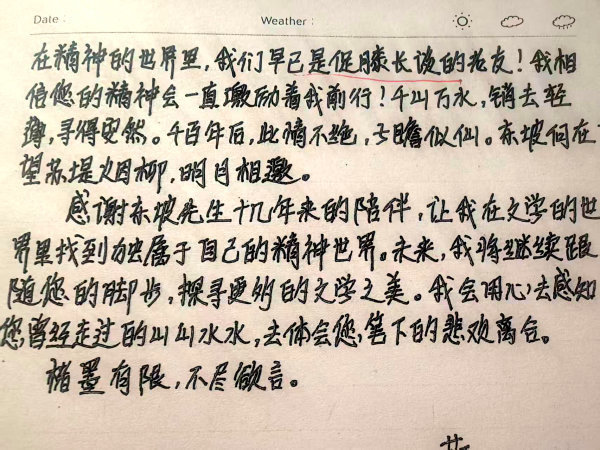 Date : Weather :
在精神的世界里，我们早已是促膝长谈的老友！我相
信您的精神会一直激励着我前行！千山万水，销去轻
薄，寻得安然。千百年后，此情不绝，子瞻似仙。东坡何在？
望苏堤烟柳，明月相邀。
感谢东坡先生十几年来的陪伴，让我在文学的世
界里找到独属于自己的精神世界。未来，我将继续跟
随您的脚步，探寻更多的文学之美。我会用心去感知
您曾经走过的山山水水，去体会您笔下的悲欢离合。
楮墨有限，不尽欲言。